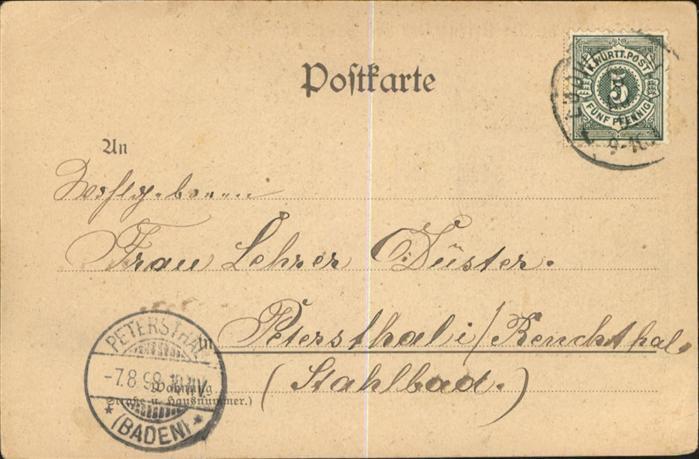 Postkarte
K. WÜRTT. POST
5
FÜNF PFENNIG
9-10
An
Wohlgeboren
Frau Lehrer O. Düster.
in Petersthal i/Renchthal.
(Stahlbad.)
Wohnung
(Straße u. Hausnummer.)
PETERSTHAL
-7.8 98
(BADEN)